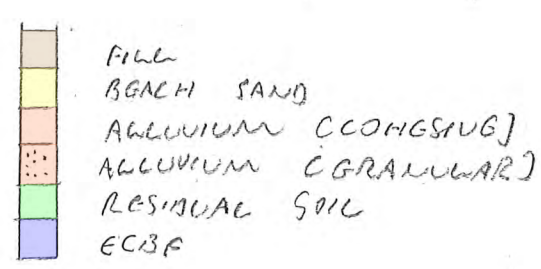 FILL
BEACH SAND
ALLUVIUM [COHESIVE]
ALLUVIUM [GRANULAR]
RESIDUAL SOIL
ECBF